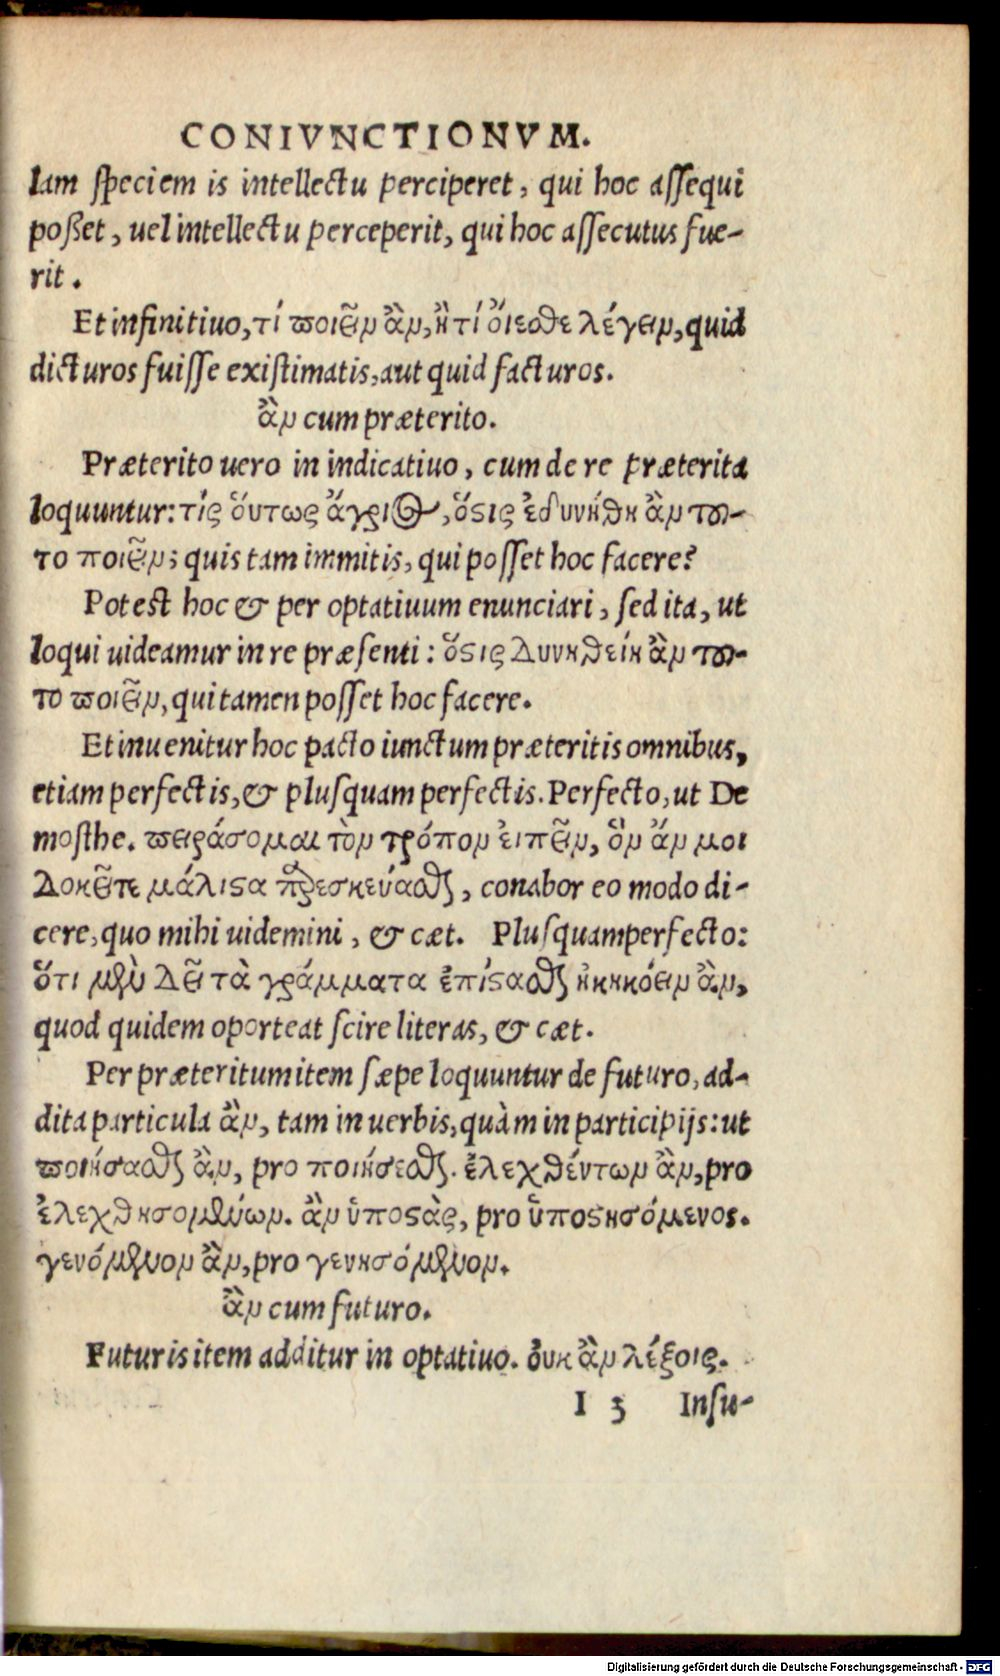 CONIVNCTIONVM.
lam speciem is intellectu perciperet, qui hoc assequi
poßet, uel intellectu perceperit, qui hoc assecutus fue-
rit.
Et infinitiuo, τί ποιεῖν ἂν, ἢ τί ὄιεσθε λέγειν, quid
dicturos fuisse existimatis, aut quid facturos.
ἂν cum præterito.
Præterito uero in indicatiuo, cum de re præterita
loquuntur: τίς ὅυτως ἄγριος, ὅςις ἐδυνήθη ἂν τοῦ-
το ποιεῖν; quis tam immitis, qui posset hoc facere?
Potest hoc & per optatiuum enunciari, sed ita, ut
loqui uideamur in re præsenti: ὅςις Δυνηθείη ἂν τοῦ-
το ποιεῖν, qui tamen posset hoc facere.
Et inuenitur hoc pacto iunctum præteritis omnibus,
etiam perfectis, & plusquam perfectis. Perfecto, ut De
mosthe. πειράσομαι τὸν τρόπον ἐιπεῖν, ὃν ἄν μοι
Δοκεῖτε μάλιςα παρεσκεύασθαι, conabor eo modo di-
cere, quo mihi uidemini, & cæt. Plusquamperfecto:
ὅτι μὲν Δεῖ τὰ γράμματα ἐπίςασθαι ἠκηκόειν ἂν,
quod quidem oporteat scire literas, & cæt.
Per præteritum item sæpe loquuntur de futuro, ad-
dita particula ἂν, tam in uerbis, quàm in participijs: ut
ποιήσασθαι ἂν, pro ποιήσεσθαι. ἐλεχθέντων ἂν, pro
ἐλεχθησομένων. ἂν ὑποςὰς, pro ὑποςησόμενος.
γενόμενον ἂν, pro γενησόμενον.
ἂν cum futuro.
Futuris item additur in optatiuo. ὀυκ ἂν λέξοις.
I 3 Insu-
Digitalisierung gefördert durch die Deutsche Forschungsgemeinschaft - DFG